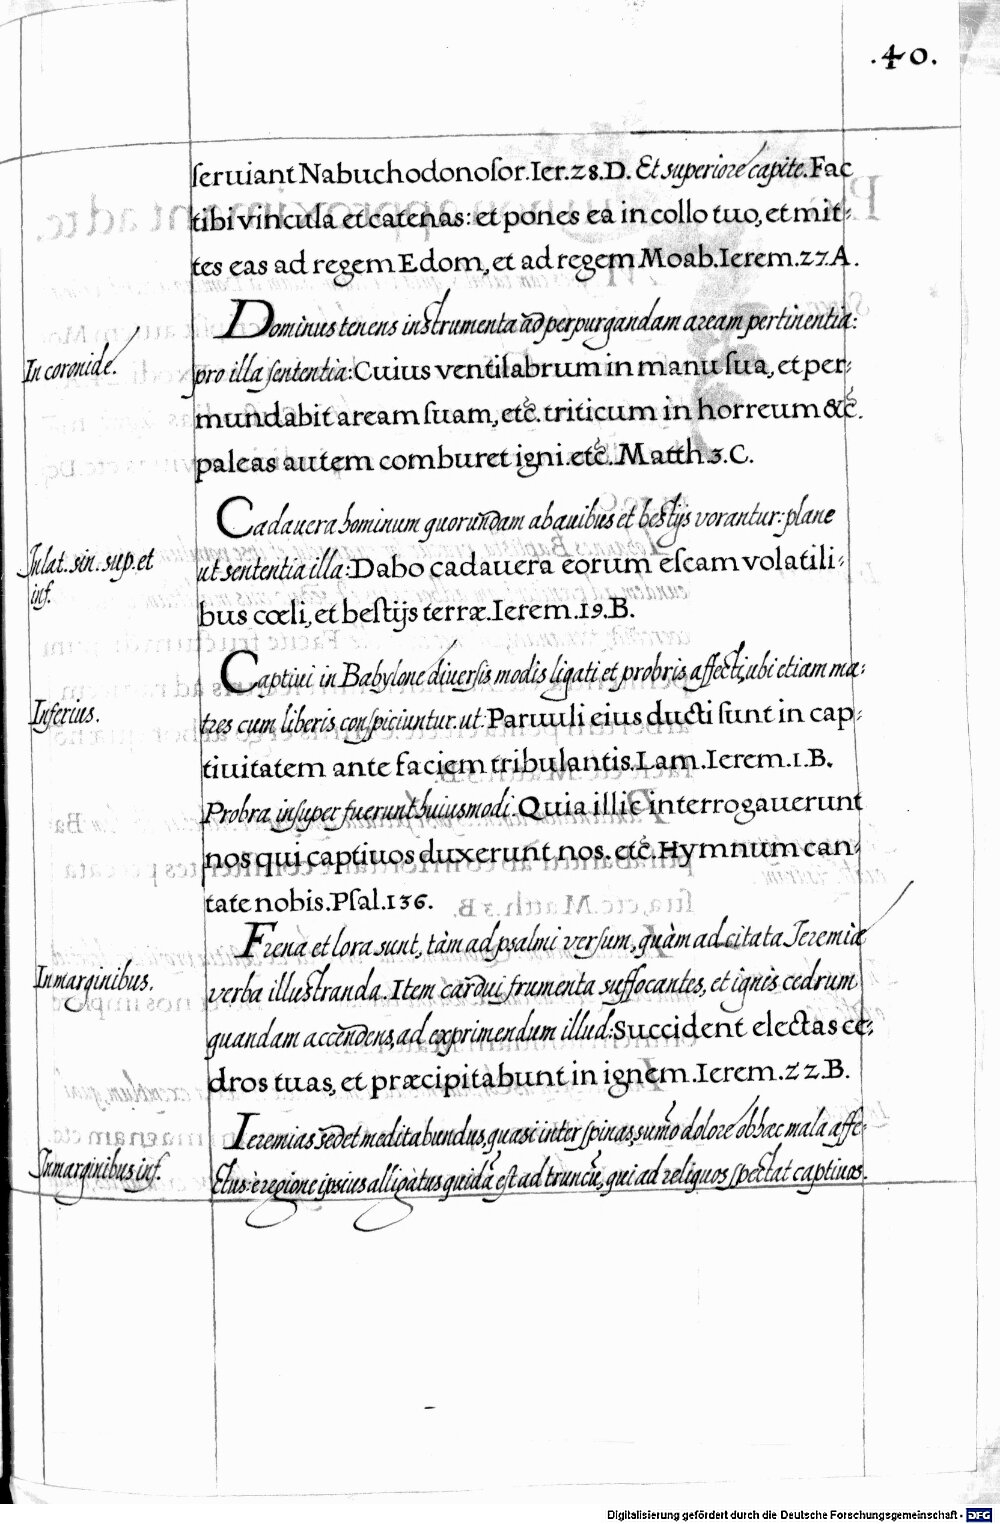 .40.
ſeruiant Nabuchodonoſor. Ier. 28. D. Et superiore capite. Fac
tibi vincula et catenas: et pones ea in collo tuo, et mit-
tes eas ad regem Edom, et ad regem Moab. Ierem. 27. A.
In coronide.
Dominus tenens inſtrumenta ad perpurgandam aream pertinentia:
pro illa ſententia: Cuius ventilabrum in manu ſua, et per-
mundabit aream ſuam, etc̃. triticum in horreum &c̃.
paleas autem comburet igni. etc̃. Matth. 3. C.
In lat. sin. sup. et
inf.
Cadauera hominum quorundam ab auibus et beſtijs vorantur: plane
ut sententia illa: Dabo cadauera eorum eſcam volatili-
bus cœli, et beſtijs terræ. Ierem. 19. B.
Inferius.
Captiui in Babylone diuerſis modis ligati et probris affecti, ubi etiam ma-
tres cum liberis conſpiciuntur. ut: Paruuli eius ducti ſunt in cap-
tiuitatem ante faciem tribulantis. Lam. Ierem. 1. B.
Probra inſuper fuerunt huiusmodi. Quia illic interrogauerunt
nos qui captiuos duxerunt nos. etc̃. Hymnum can-
tate nobis. Pſal. 136.
In marginibus.
Frena et lora sunt, tàm ad psalmi verſum, quàm ad citata Jeremiæ
verba illuſtranda. Item cardui frumenta suffocantes, et ignis cedrum
quandam accendens, ad exprimendum illud: Succident electas ce-
dros tuas, et præcipitabunt in ignem. Ierem. 22. B.
In marginibus inf.
Ieremias sedet meditabundus, quasi inter ſpinas, sum̃o dolore ob hæc mala affe-
ctus: è regione ipsius alligatus quidã eſt ad truncũ, qui ad reliquos ſpectat captiuos.
Digitalisierung gefördert durch die Deutsche Forschungsgemeinschaft - DFG